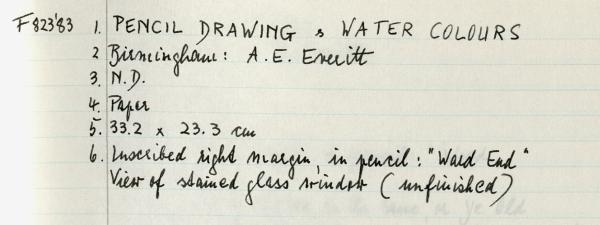 F823'83 1. PENCIL DRAWING & WATER COLOURS
2 Birmingham: A.E. Everitt
3. N.D.
4. Paper
5. 33.2 x 23.3 cm
6. Inscribed right margin, in pencil: "Ward End"
View of stained glass window (unfinished)